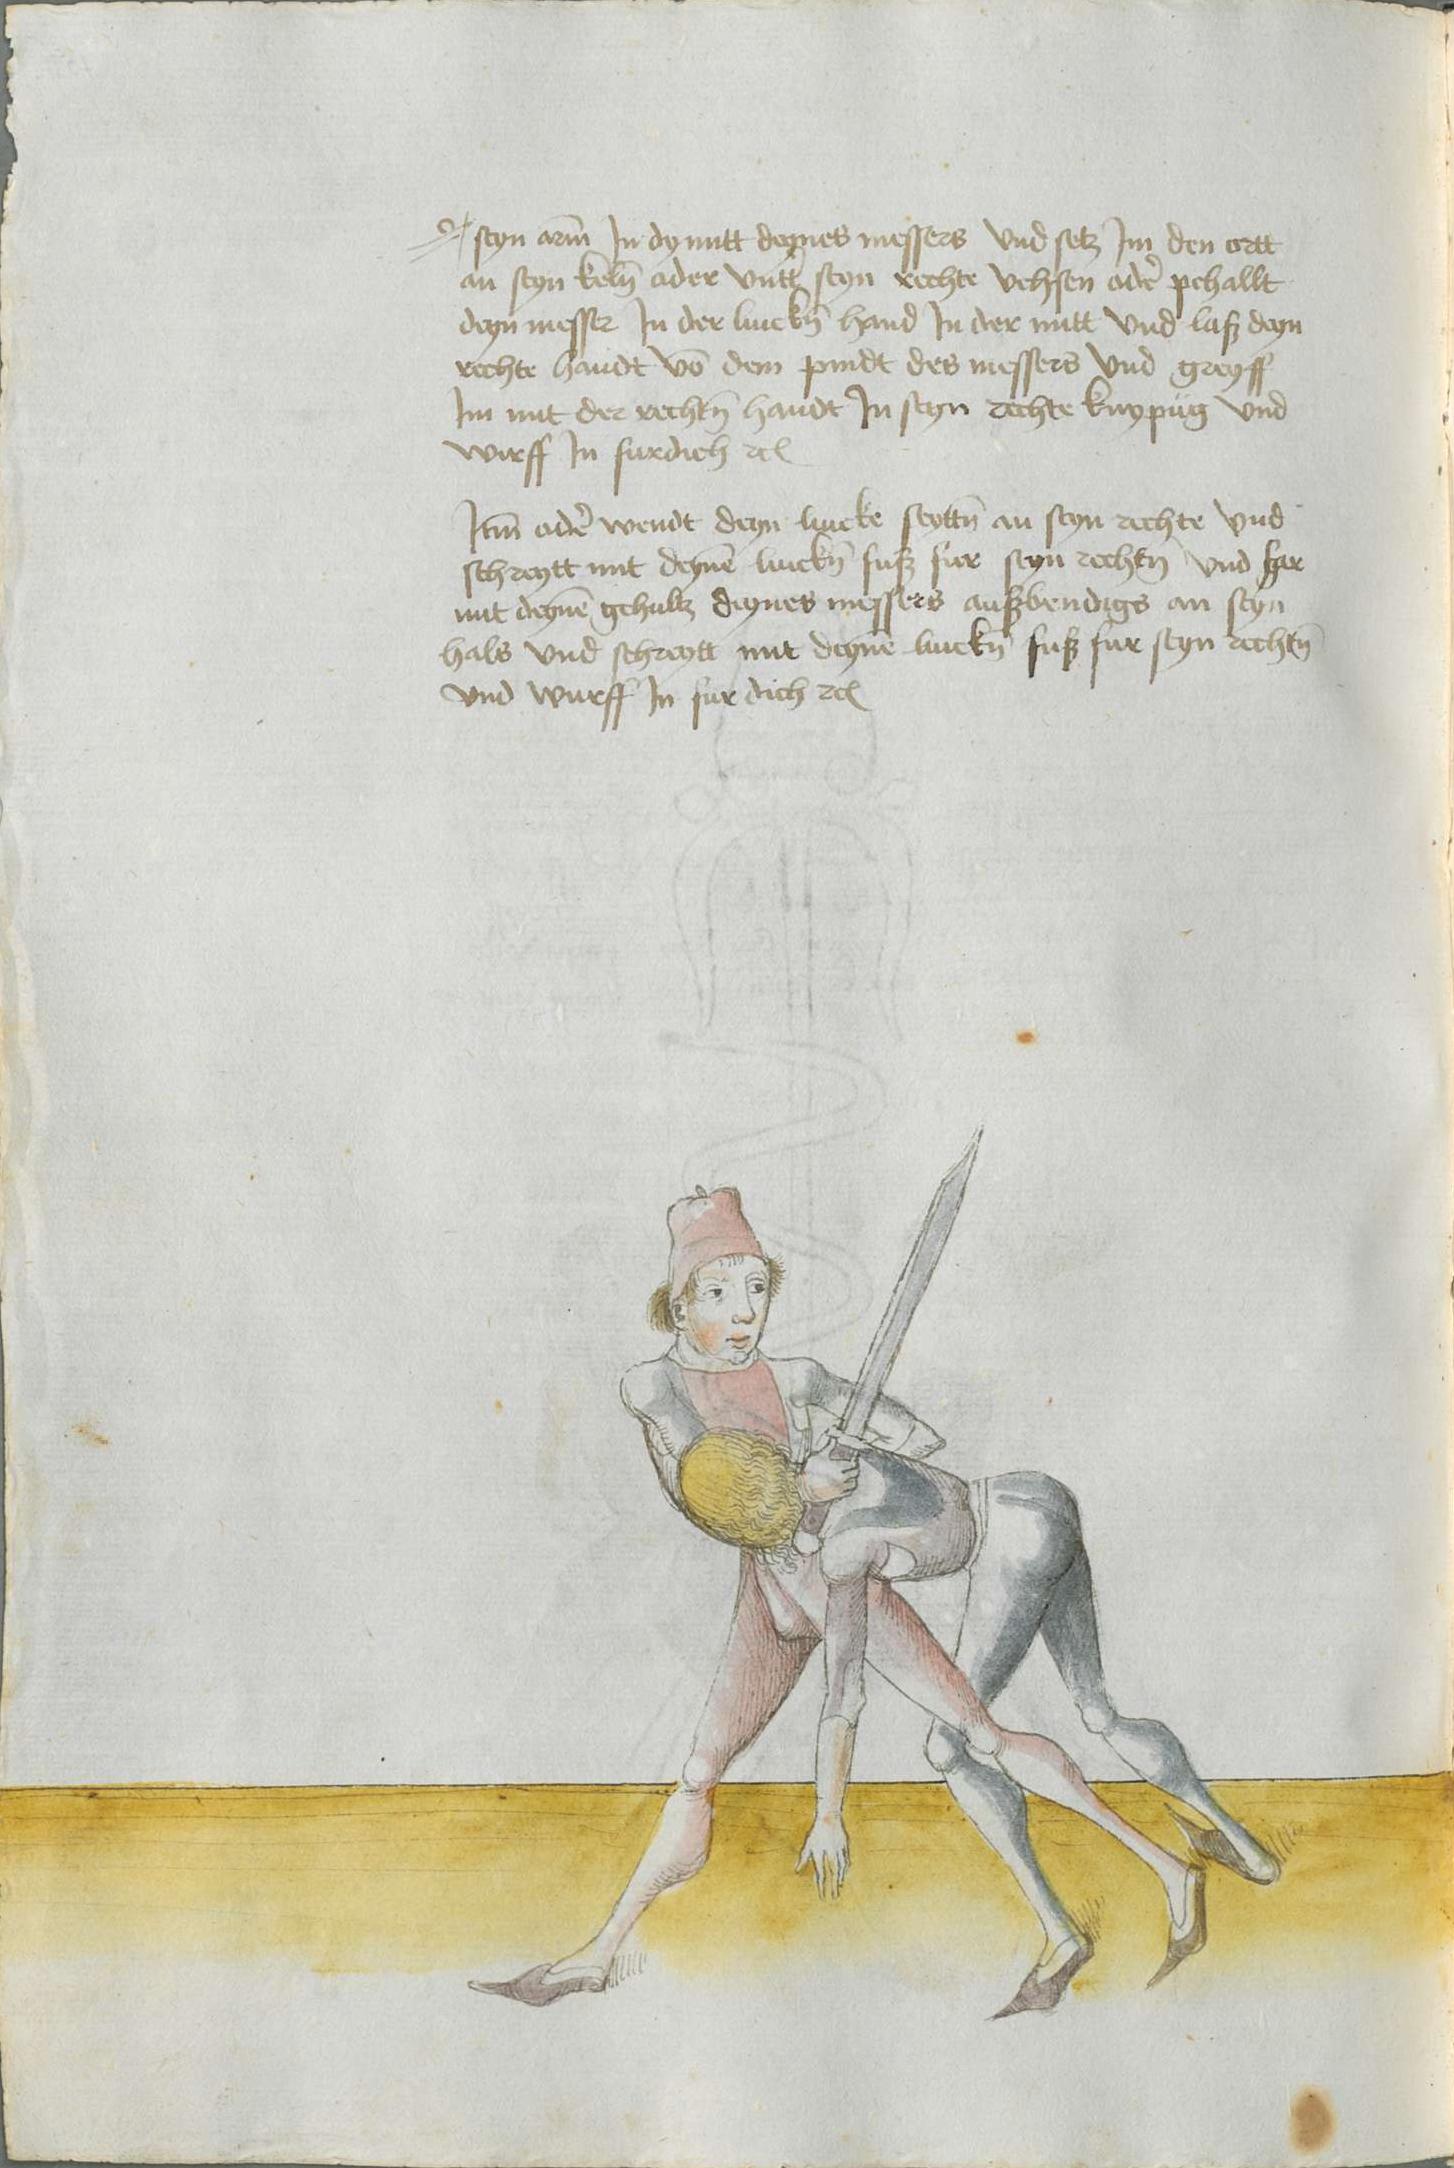 seyn arm̄ In dy mitt deynes messers Vnd setz Im den ortt
an seyn keln̄ ader vntt̄ seyn rechte Vchsen ader̄ pehallt
deyn messer In der linckn̄ hand In der mitt Vnd laß deyn
rechte handt vō dem pindt des messers Vnd greyff
Im mit der rechtn̄ handt In seyn rechte knypüg Vnd
wirff In furdich rc
Itm̄ ader̄ wendt deyn lincke seyttn̄ an seyn rechte Vnd
schreytt mit deynē linckn̄ fuß fur seyn rechtn̄ Vnd far
mit deynē gehultz deynes messers außbendigs an seyn
hals vnd schreytt mit deynē linckn̄ fuß fur seyn rechtn̄
vnd wurff In fur dich rc